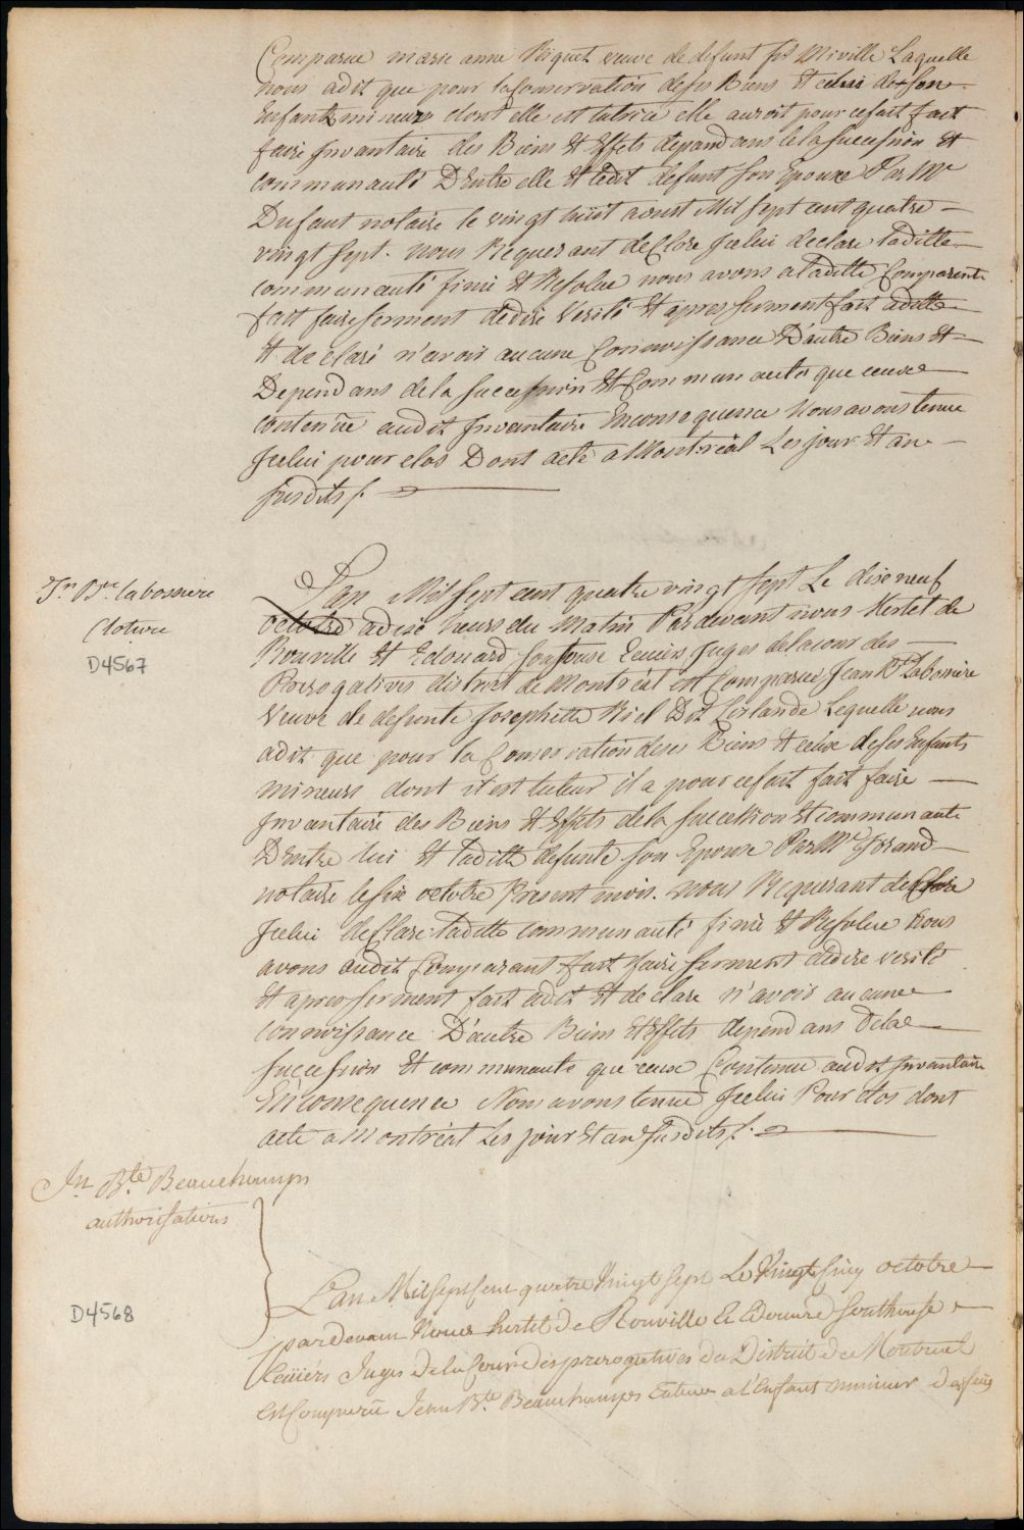 Comparue marie anne Piquet veuve de defunt fs Miville Laquelle
nous adit que pour la Conservation deses Biens et celui de son
Enfant mineurs dont elle est tutrice elle auroit pour cefait fait
faire Jnvantaire des Biens Et Effets dependans de la Succession Et
communauté D'Entre elle Et ledit defunt son Epoux Par Mr
Dufaut notaire le vingt huit aoust Mil sept cent quatre
vingt sept. nous Requerant de Clore Jcelui declare laditte
communauté finie Et Resolue nous avons a laditte Comparente
fait faire serment de dire verité Et apres serment fait aditte
Et declaré n'avoir aucune Connoissance D'autre Biens Et
Dependans de la Succession Et Communauté que ceuxe
contenüe audit Jnvantaire Enconsequence Nous avons tenue
Jcelui pour clos Dont acte a Montréal Les jour Et an
susdits /.
Jn Bte labossiere
Cloture
D4567
L'an Mil sept cent quatre vingt sept Le dix neuf
octobre a dixe heurs du Matin Pardevant nous Hertet de
Rouville Et Edouard Soutouse Ecuiers Juges delacour des
Prerogatives district de Montréal est Comparue Jean Bte Labossiere
Veuve de defunte Josephette Riel Dit L'irlande Lequelle nous
adit que pour la Conservation deses Biens Et celixe deses Enfants
mineurs dont il est tuteur il a pour cefait fait faire
Jnvantaire des Biens Et Effets dela Succession Et communauté
D'Entre lui Et laditte defunte son Epouse Par Mr
notaire le six octobre Present mois. nous Requerant de Clore
Jcelui declare laditte communauté finie Et Resolue nous
avons audit Comparant fait faire serment dedire verité
Et apres serment fait adit Et declare n'avoir aucune
connoissance D'autre Biens Et Effets dependans dela
Succession Et communauté que ceuxe Contenue audit Jnvantaire
En consequence Nous avons tenue Jcelui Pour clos dont
acte a Montréal Les jour Et an susdits /.
Jn Bte Beauchamps
authorisations
D4568
L'an Mil sept Cent quatre Vingt sept Le Vingt Cinq octobre
pardevant Nous hertel de Rouville Et Edouard Southouse
Ecuiers Juges Dela Cour des prerogatives du District de Montreal
Est Comparu Jean Bte Beauchamps tuteur a l'Enfant mineur De feüe